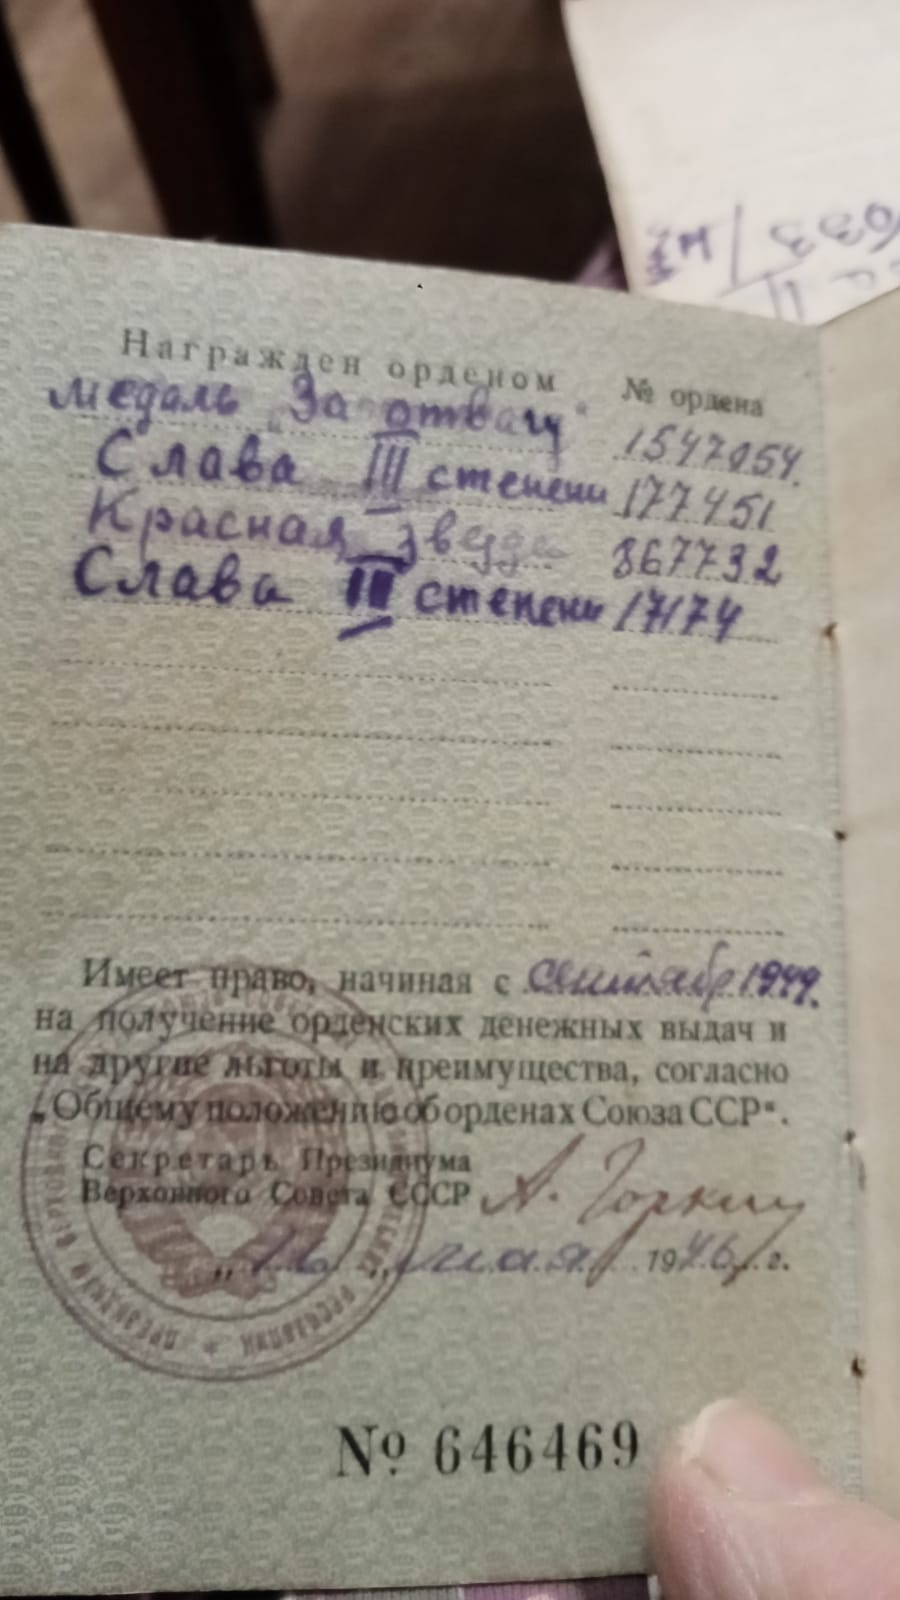 Награжден орденом № ордена
медаль „За отвагу“ 1547054.
Слава III степени 177451
Красная звезда 867732
Слава II степени 17174
Имеет право, начиная с сентябр 1944.
на получение орденских денежных выдач и
на другие льготы и преимущества, согласно
„Общему положению об орденах Союза ССР“.
Секретарь Президиума
Верховного Совета СССР А. Горкин
„16„ мая 1946 г.
№ 646469